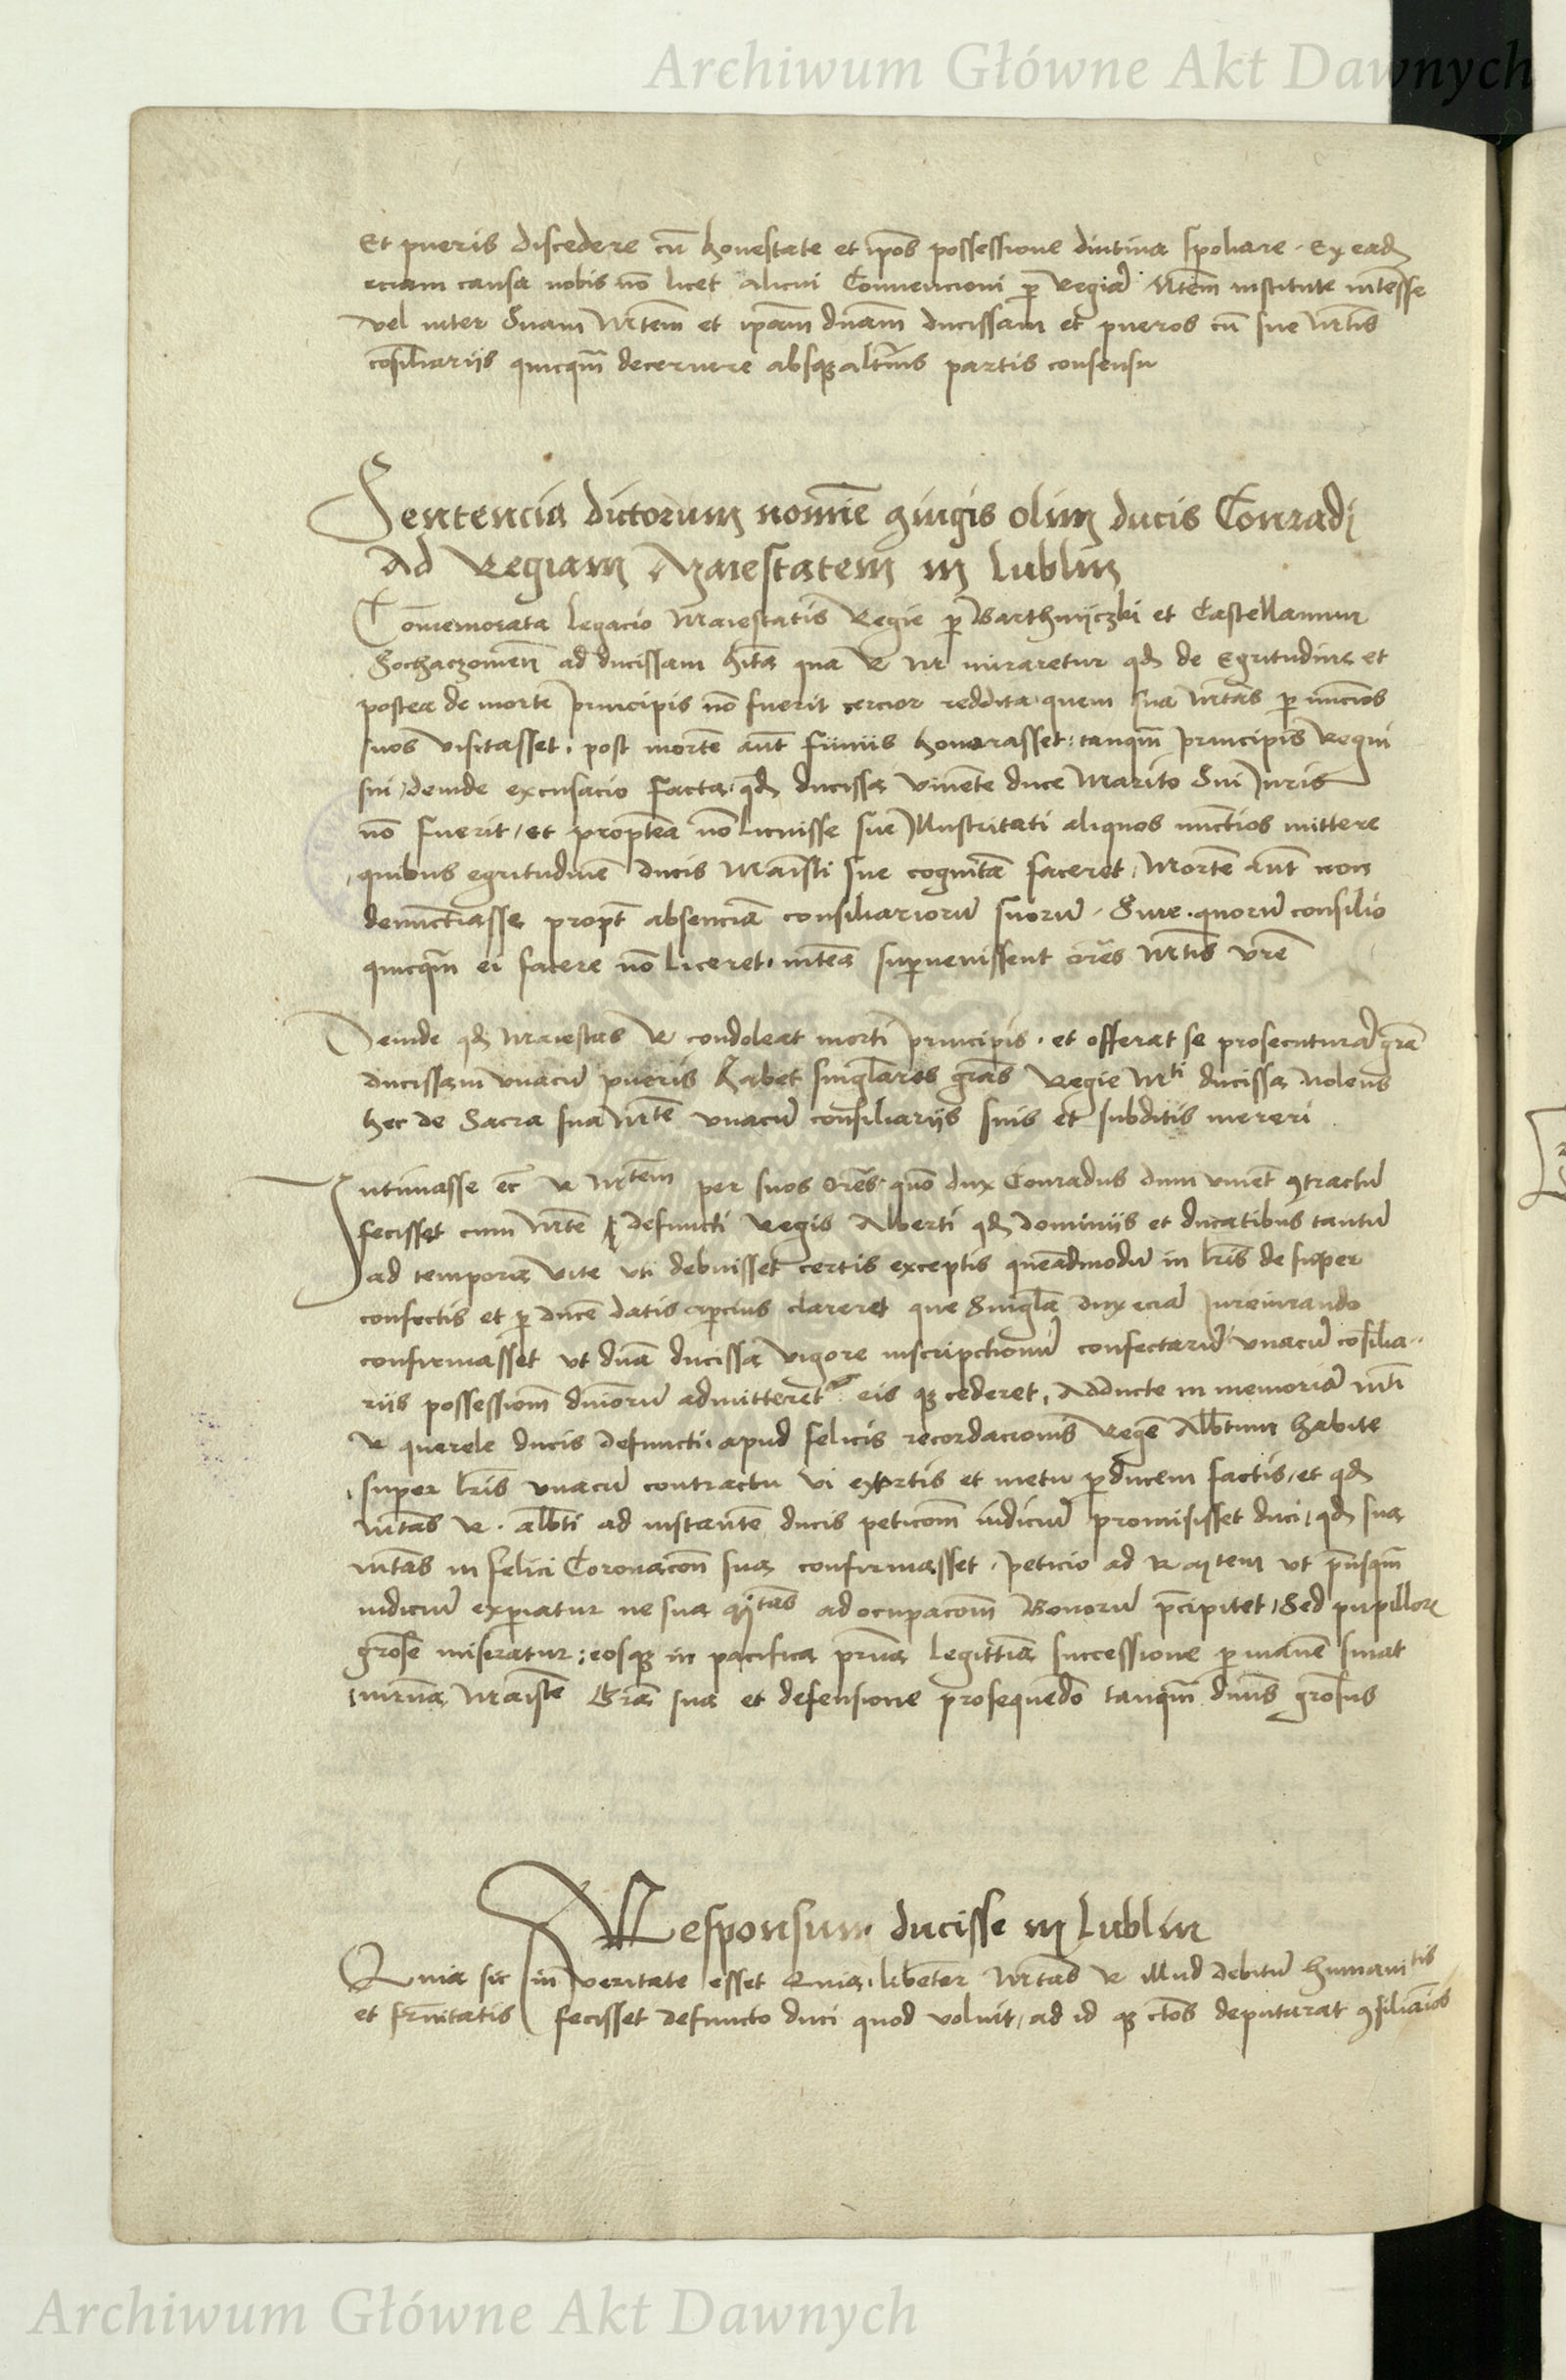 Archiwum Główne Akt Dawnych
Et pueris discedere cū honestate et ipōs possessione diutina spoliare. Ex eadē
eciam causa nobis nō licet alicui Convencioni p Regiā Mtem institute interesse
vel inter Suam Mtem et ipam dnam ducissam et pueros cū sue Mtis
cōsiliariis quicqm decernere absq altius partis consensu
Sentencia dictorum nomine giugis olim ducis Conradi
Ad Regiam Maiestatem in Lublin
Cōmemorata legacio Maiestatis Regie p Barthnyczki et Castellanum
Sochaczowien ad ducissam hita qua R M miraretur qd de Egritudine et
postea de morte principis nō fuerit cercior reddita quem sua Mtas p nuncios
suos visitasset, post mortē aut funus honorasset, tanqm principis Regni
sui, deinde excusacio facta, qd ducissa vivente duce Marito Sui Juris
nō fuerit, et proptea nō licuisse sue Illustritati aliquos nunctios mittere
quibus egritudinē ducis Maiesti sue cognitā faceret, Mortē aut non
denunctiasse propt absenciā consiliariorū suorū, Sine quorū consilio
quicqm ei facere nō liceret, intea supvenissent orēs Mtis vrē
Deinde qd Maiestas R condoleat morti principis, et offerat se prosecuturā grā
ducissam unacū pueris habet singlares gras Regie Mti ducissa volens
hec de Sacra sua Mte unacū consiliariis suis et subditis mereri
Intimasse ec R Mtem per suos Orēs quō dux Conradus dum viveret gtractū
fecisset cum Mte defuncti Regis Alberti qd dominiis et ducatibus tantū
ad tempora vite uti debuisset certis exceptis quēadmodū in lris de super
confectis et p ducē datis apcius clareret que Singlā dux eciā Jureiurando
confirmasset ut dnā ducissa vigore inscriptionū confectarū unacū cōsilia-
riis possessionm dniorū admitteret eis q cederet, Adducte in memoriā Mti
R querele ducis defuncti, apud felicis recordacionis Regē Albtum habite
super lris unacū contractu vi extortis et metu p ducem factis, et qd
Mtas R. Albti ad instantē ducis peticionm iudiciū promisisset duci, qd sua
Mtas in felici Coronacōn sua confirmasset, Peticio ad R Mtem ut priusqm
iudiciū expiatur ne sua Mtas ad ocupacōm Bonorū pcipitet, Sed pupillorū
grōse miseratur, eosq in pacifica prna legittia successione pmanē sinat
Maistē Grā sua et defensione prosequendo tanqm dnūs grōsus
Responsum ducisse in Lublin
Quia sic in veritate esset Quia, libenter Mtas R illud debitū humanitis
et frnitatis fecisset defuncto duci quod voluit, ad id q ctōs deputarat gsiliarios
Archiwum Główne Akt Dawnych